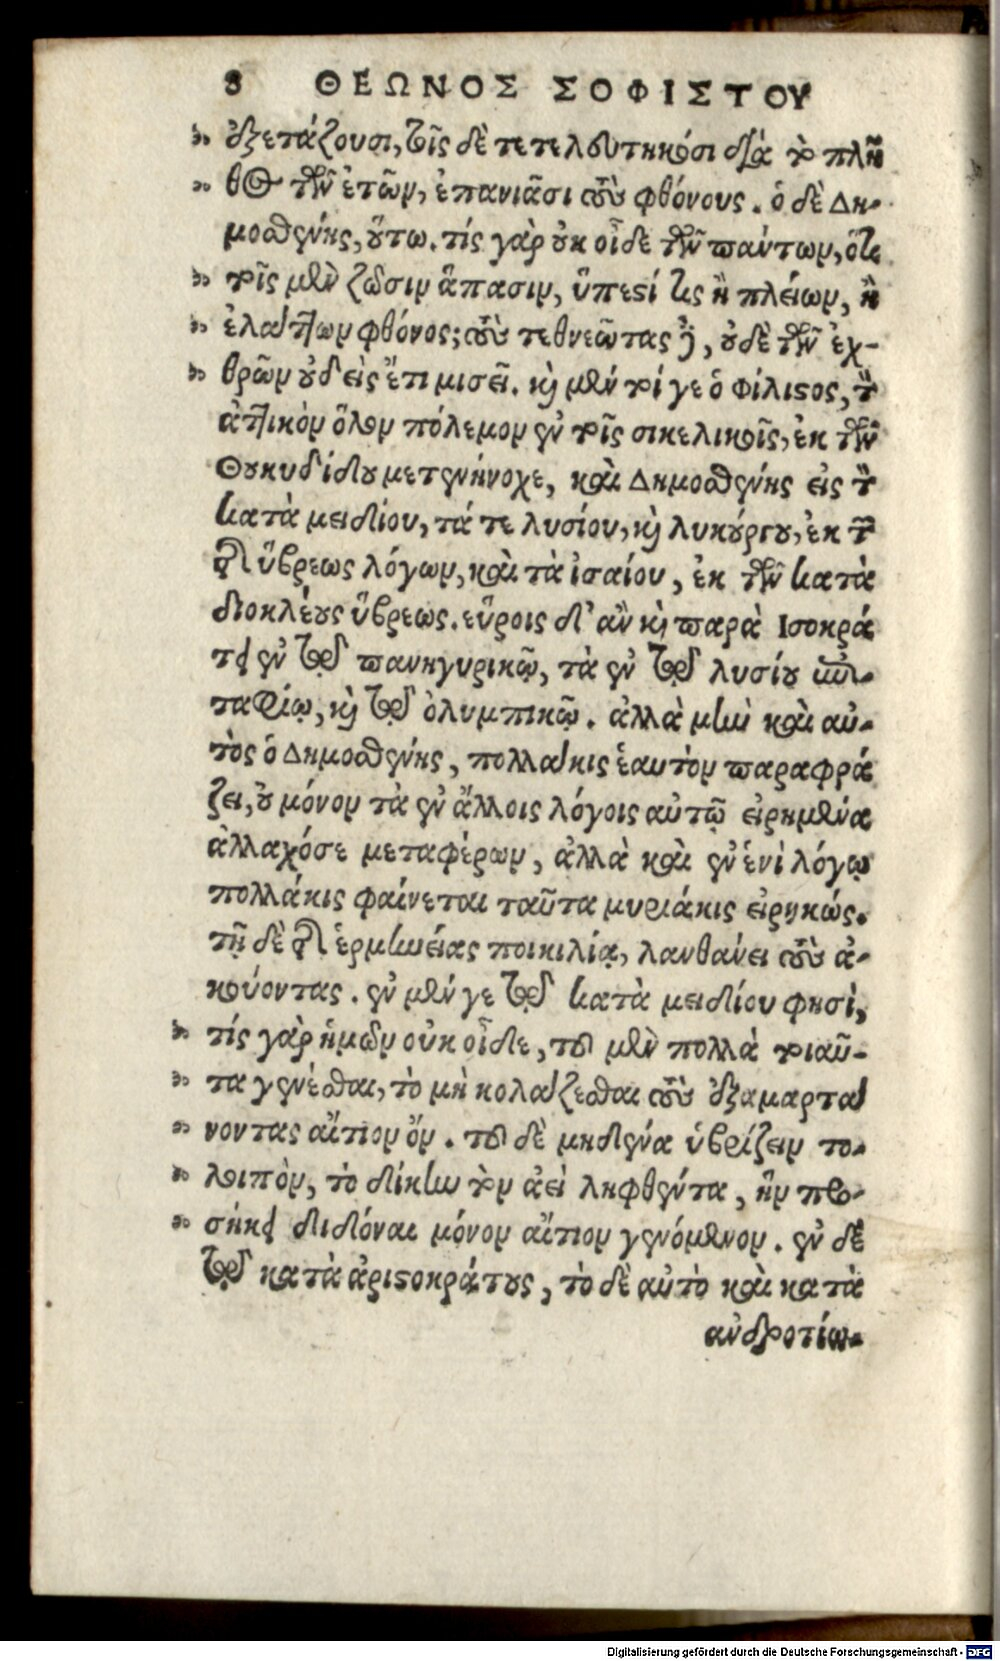 8 ΘΕΩΝΟΣ ΣΟΦΙΣΤΟΥ
ἐξετάζουσι, τοῖς δὲ τετελευτηκόσι διὰ τὸ πλῆ
θος τῶν ἐτῶν, ἐπανιᾶσι τοὺς φθόνους. ὁ δὲ Δη-
μοσθένης, οὕτω. τίς γὰρ οὐκ οἶδε τῶν πάντων, ὅτι
τοῖς μὲν ζῶσιν ἅπασιν, ὕπεστί τις ἢ πλείων, ἢ
ἐλάττων φθόνος; τοὺς τεθνεῶτας δὲ, οὐδὲ τῶν ἐχ-
θρῶν οὐδεὶς ἔτι μισεῖ. καὶ μέν τοί γε ὁ Φίλιστος, τὸν
ἀττικὸν ὅλον πόλεμον ἐν τοῖς σικελικοῖς, ἐκ τῶν
Θουκυδίδου μετενήνοχε, καὶ Δημοσθένης εἰς τὸν
κατὰ μειδίου, τά τε λυσίου, καὶ λυκούργου, ἐκ τῶν
τῆς ὕβρεως λόγων, καὶ τὰ ἰσαίου, ἐκ τῶν κατὰ
διοκλέους ὕβρεως. εὕροις δ' ἂν καὶ παρὰ Ισοκρά
τει ἐν τῷ πανηγυρικῷ, τὰ ἐν τῷ λυσίου ἐπι-
ταφίῳ, καὶ τῷ ὀλυμπικῷ. ἀλλὰ μὴν καὶ αὐ-
τὸς ὁ Δημοσθένης, πολλάκις ἑαυτὸν παραφρά
ζει, οὐ μόνον τὰ ἐν ἄλλοις λόγοις αὐτῷ εἰρημένα
ἀλλαχόσε μεταφέρων, ἀλλὰ καὶ ἐν ἑνὶ λόγῳ
πολλάκις φαίνεται ταῦτα μυριάκις εἰρηκώς.
τῇ δὲ τῆς ἑρμηνείας ποικιλίᾳ, λανθάνει τοὺς ἀ-
κούοντας. ἐν μέν γε τῷ κατὰ μειδίου φησὶ,
τίς γὰρ ἡμῶν οὐκ οἶδε, τοῦ μὲν πολλὰ τοιαῦ-
τα γενέσθαι, τὸ μὴ κολάζεσθαι τοὺς ἐξαμαρτά
νοντας αἴτιον ὄν. τοῦ δὲ μηδένα ὑβρίζειν το-
λοιπὸν, τὸ δίκην τὸν ἀεὶ ληφθέντα, ἣν προ-
σήκει διδόναι μόνον αἴτιον γενόμενον. ἐν δὲ
τῷ κατὰ ἀριστοκράτους, τὸ δὲ αὐτὸ καὶ κατὰ
ἀνδροτίω-
Digitalisierung gefördert durch die Deutsche Forschungsgemeinschaft - DFG